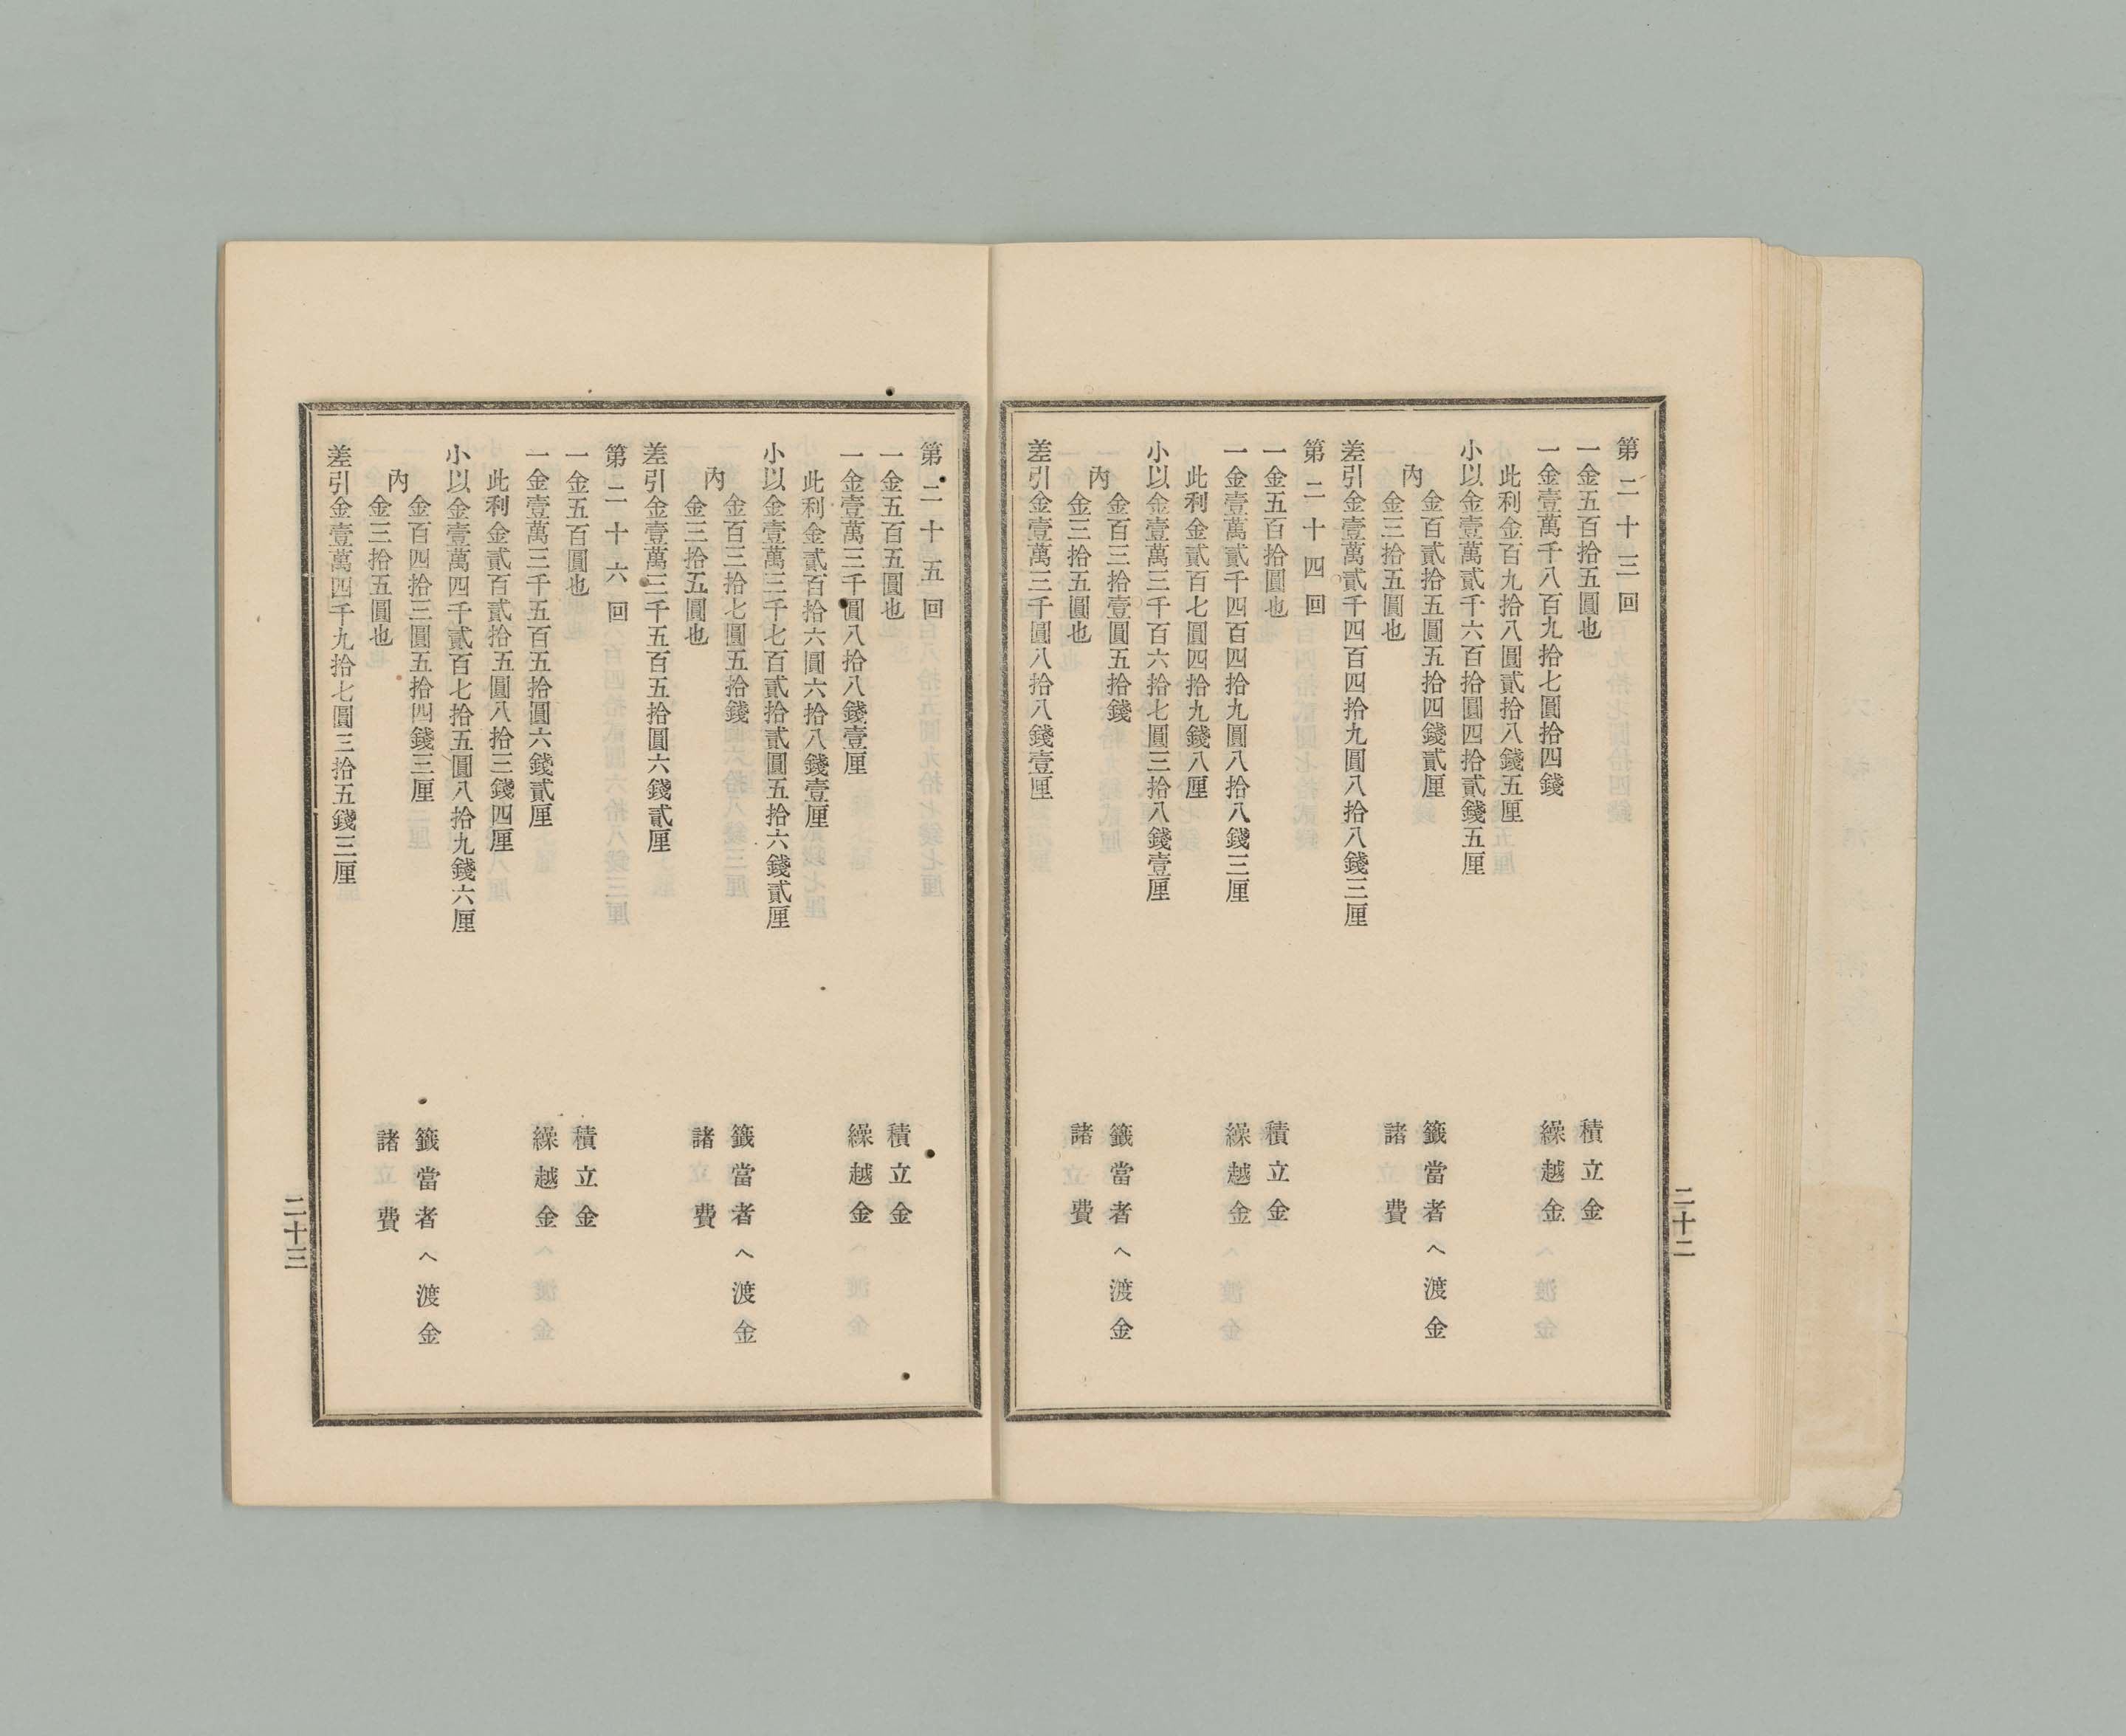 第二十三回
一金五百拾五圓也　積立金
一金壹萬千八百九拾七圓拾四錢　繰越金
此利金百九拾八圓貳拾八錢五厘
小以金壹萬貳千六百拾圓四拾貳錢五厘
內
金百貳拾五圓五拾四錢貳厘　籤當者へ渡金
金三拾五圓也　諸費
差引金壹萬貳千四百四拾九圓八拾八錢三厘
第二十四回
一金五百拾圓也　積立金
一金壹萬貳千四百四拾九圓八拾八錢三厘　繰越金
此利金貳百七圓四拾九錢八厘
小以金壹萬三千百六拾七圓三拾八錢壹厘
內
金百三拾壹圓五拾錢　籤當者へ渡金
金三拾五圓也　諸費
差引金壹萬三千圓八拾八錢壹厘
二十二
第二十五回
一金五百五圓也　積立金
一金壹萬三千圓八拾八錢壹厘　繰越金
此利金貳百拾六圓六拾八錢壹厘
小以金壹萬三千七百貳拾貳圓五拾六錢貳厘
內
金百三拾七圓五拾錢　籤當者へ渡金
金三拾五圓也　諸費
差引金壹萬三千五百五拾圓六錢貳厘
第二十六回
一金五百圓也　積立金
一金壹萬三千五百五拾圓六錢貳厘　繰越金
此利金貳百貳拾五圓八拾三錢四厘
小以金壹萬四千貳百七拾五圓八拾九錢六厘
內
金百四拾三圓五拾四錢三厘　籤當者へ渡金
金三拾五圓也　諸費
差引金壹萬四千九拾七圓三拾五錢三厘
二十三